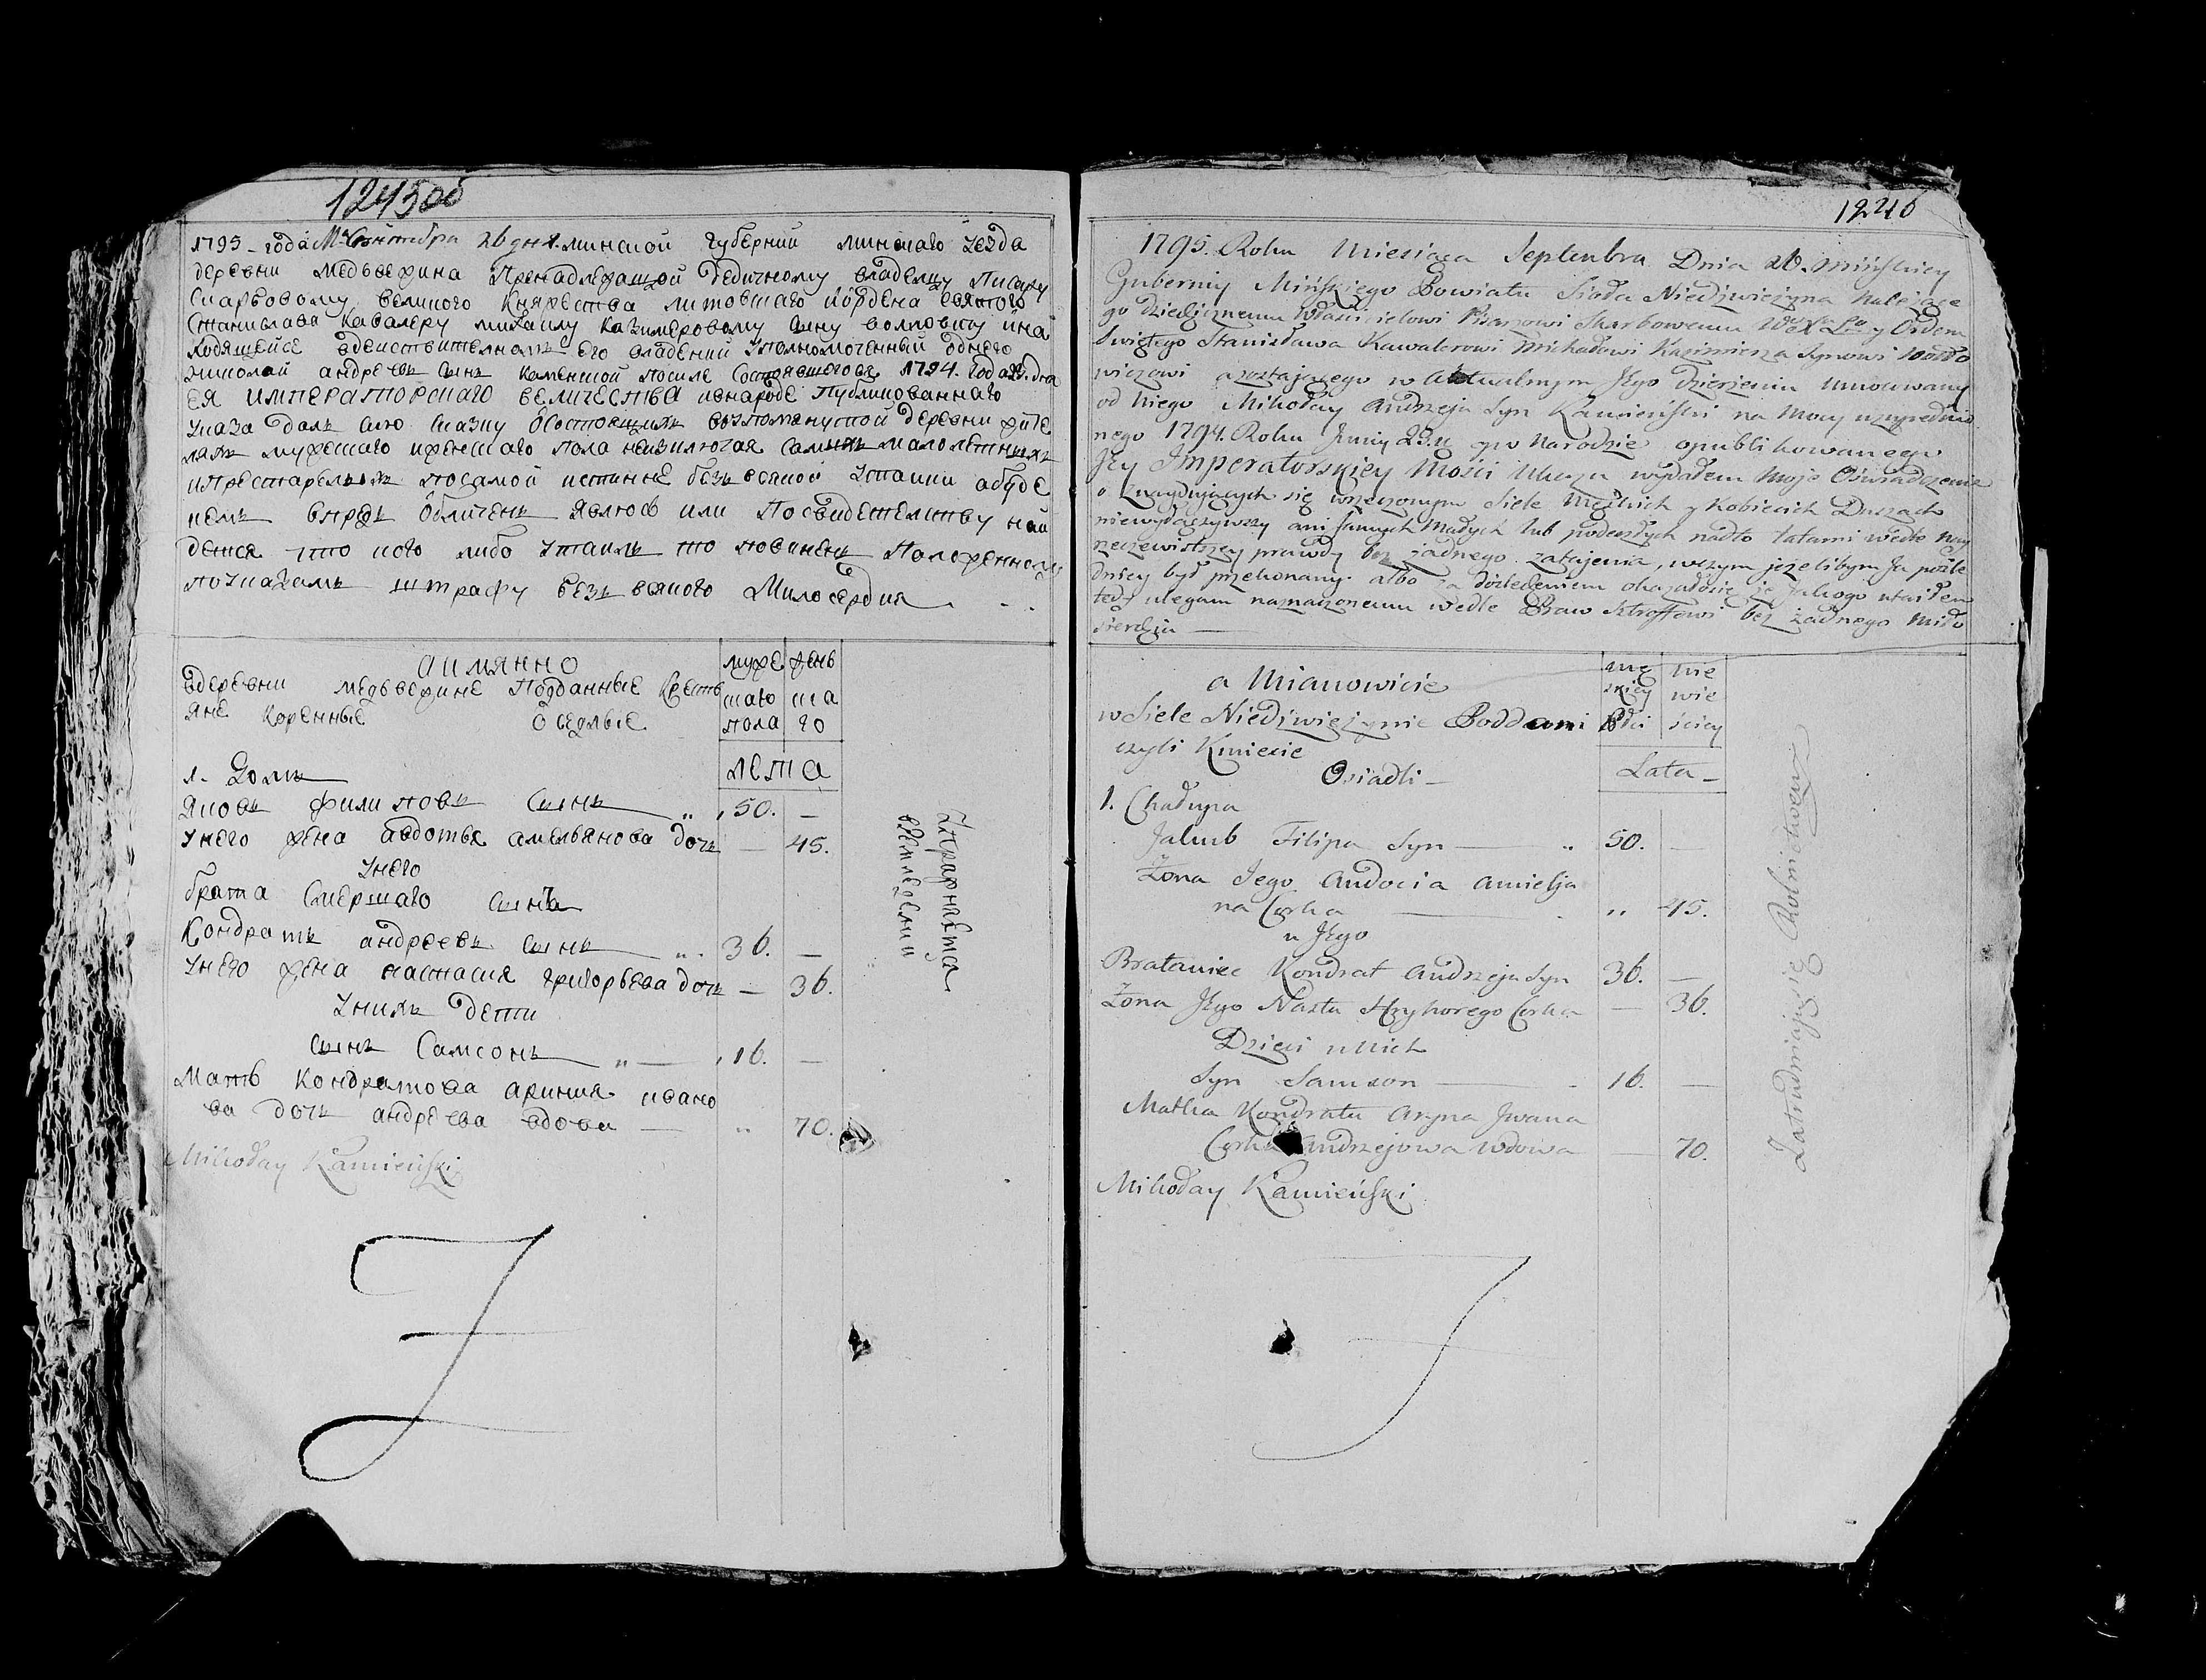 1245об
1795 – года Мца Сентебра 26 дня. минской губернии минскаго уезда
деревни медьвежина Пренадлежащой Дедичному владелцу Писару
Скарбовому великого Княжества литовскаго Йордена святого
Станислава Кавалеру михаилу казимеровому сыну волловичу инаи
ходящейсе вдействителномъ его владении уполномоченный однего
николай андреевъ сынъ каменской посиле состоявшогося 1794. года 23. дня
ея императорскаго величества ивнароде Публикованнаго
указа далъ сию сказку осостоящихъ ввупомянустой деревни жите
ляхъ мужескаго иженскаго пола неизключая самыхъ малолетныхъ
ипрестарелыхъ посамой истинне безъ всякой утайки абуде
чемъ впредь обличенъ явлюсь или Посвидетелству най
детса что кого либо утаилъ то повиненъ Положенному
поуказамъ штрафу безъ всякого Милосердия
аимянно
вдеревни медьвежине Подданные Кресть
яне коренные оседлые
муже скаго пола
жень ска го
лета
1. Домъ
Яковъ филиповъ сынъ 50. —
Унего жена авдотья амельянова дочь — 45.
Унего
брата Смерскаго сынъ
Кондратъ андреевъ сынъ 36. —
Унего жена настасия григорьева дочь — 36.
Унихъ Дети
сынъ Самсонъ 16. —
Мать Кондратова ариния ивано
ва дочь андреева вдова — 70.
Упражняется
вземледелии
Mikołay Kamieński
1246
1795. Roku Miesiąca Septembra Dnia 26. Mińskiey
Gubernij Mińskiego Powiatu Sioła Niedźwieżyna należące
go dziedicznemu Właścicielowi Pisarzowi Skarbowemu WoXa Lgo y Orderu
Świętego Stanisława Kawalerowi Michałowi Kazimierza Synowi Wołło
wiczowi a zostającego w Aktualnym Jego dzierżeniu umocowany
od Niego Mikołay Andrzeja Syn Kamieński na mocy uzgrednio
nego 1794. Roku Juniy 23. y w Narodzie opublikowanego
Jey Imperatorskiey Mości Ukazu wydałem moje Oświadczenie
o znayduiących się wrzeczonym Siele Męzkich y Kobiecich Duszach
niewyłączywszy ani samych Małych lub podeszłych nadto latami wedle nay
rzeczewistszey prawdy bez żadnego zatajenia, wczym jeżelibym Ja poźle
dniey był przekonany albo za dośledzeniem okazałosię że Jakogo utaiłem
tedy ulegam naznaczonemu wedle Praw Sztroffowi bez żadnego Miło
sierdzia —
a Mianowicie
w Siele Niedźwieżynie Poddani
czyli Kmiecie
Osiadli —
mę skiey Płci
nie wie ściey
Lata —
1. Chałupa
Jakub Filipa Syn — 50. —
Żona Jego Audocia Amielja
na Corka — 45.
u Jego
Brataniec Kondrat Andrzeja Syn 36. —
Żona Jego Nasta Hryhorego Corka — 36.
Dzieci u Nich
Syn Samson — 16. —
Matka Kondrata Aryna Jwana
Corka Andrzejowa Wdowa — 70.
Zatrudniają się Rolnictwem
Mikołay Kamieński